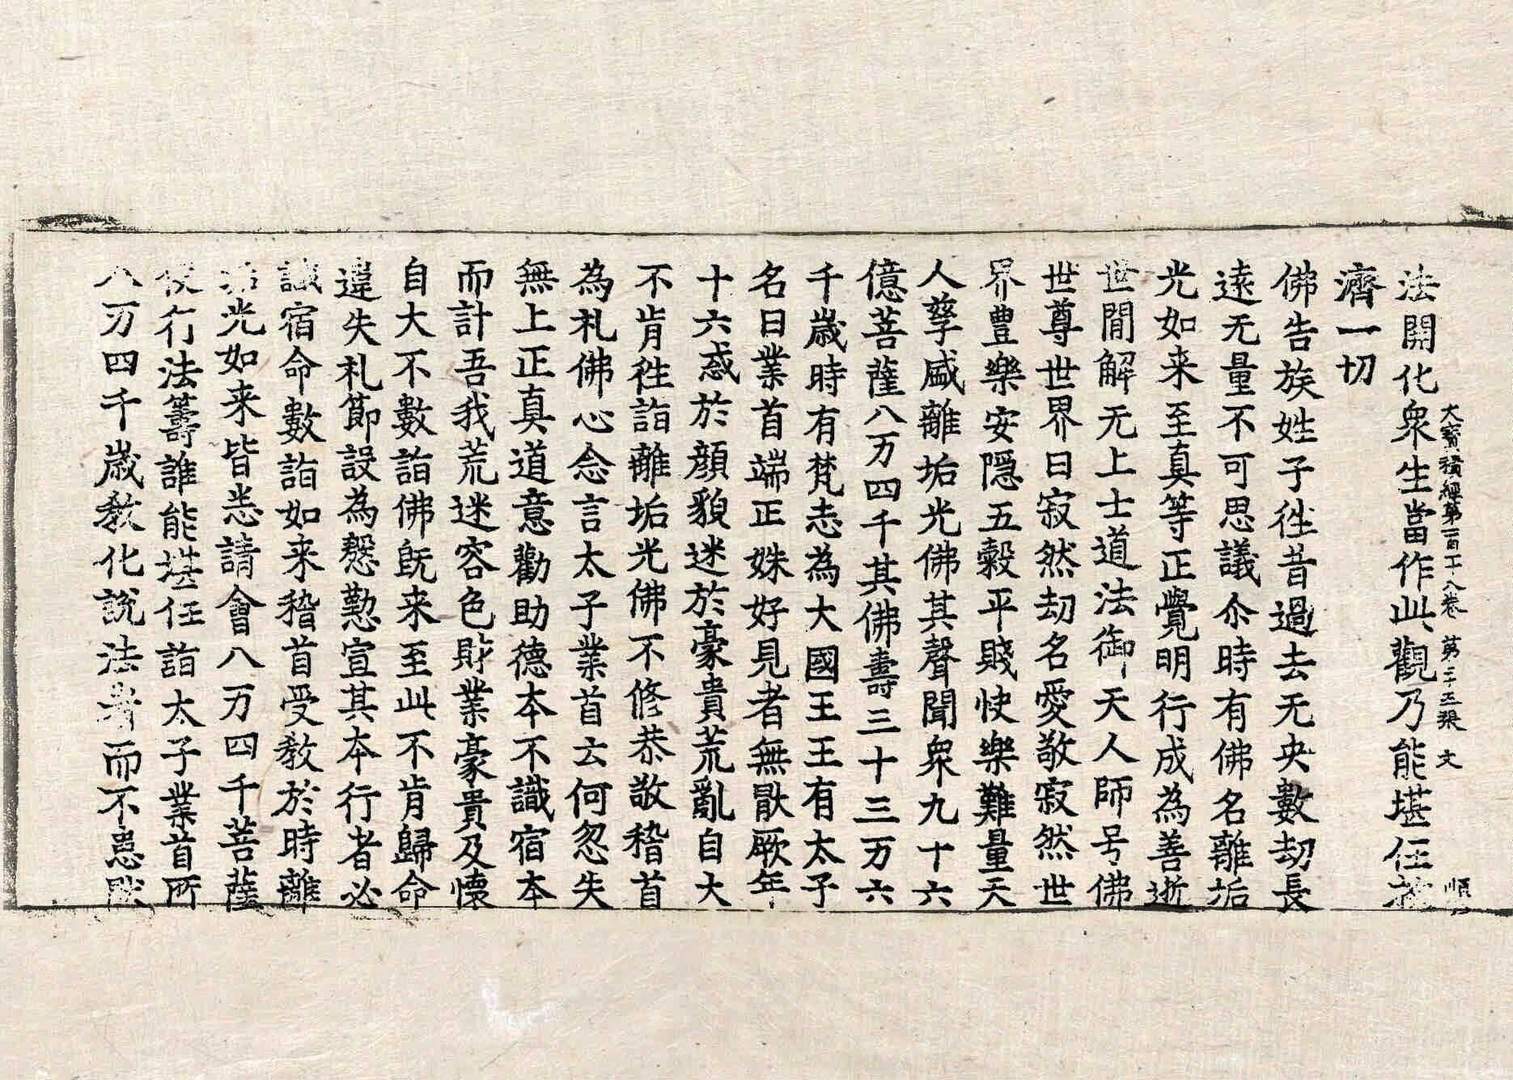 法開化衆生當作此觀乃能堪任救
大寳積經第一百一十八卷 第二十五張 文
濟一切
佛告族姓子徃昔過去无央數劫長
遠无量不可思議尒時有佛名離垢
光如来至真等正覺明行成為善逝
世閒解无上士道法御天人師号佛
世尊世界曰寂然劫名愛敬寂然世
界豊樂安隱五穀平賤快樂難量天
人孳盛離垢光佛其聲聞衆九十六
億菩薩八万四千其佛壽三十三万六
千歲時有梵志為大國王王有太子
名曰業首端正姝好見者無猒厥年
十六惑於顔貌迷於豪貴荒亂自大
不肯徃詣離垢光佛不修恭敬稽首
為礼佛心念言太子業首云何忽失
無上正真道意勸助德本不識宿本
而計吾我荒迷容色財業豪貴及懷
自大不數詣佛旣来至此不肯歸命
違失礼節設為慇懃宣其本行者必
識宿命數詣如来稽首受敎於時離
垢光如来皆悉請會八万四千菩薩
使行法籌誰能堪任詣太子業首所
八万四千歲敎化說法者而不患猒